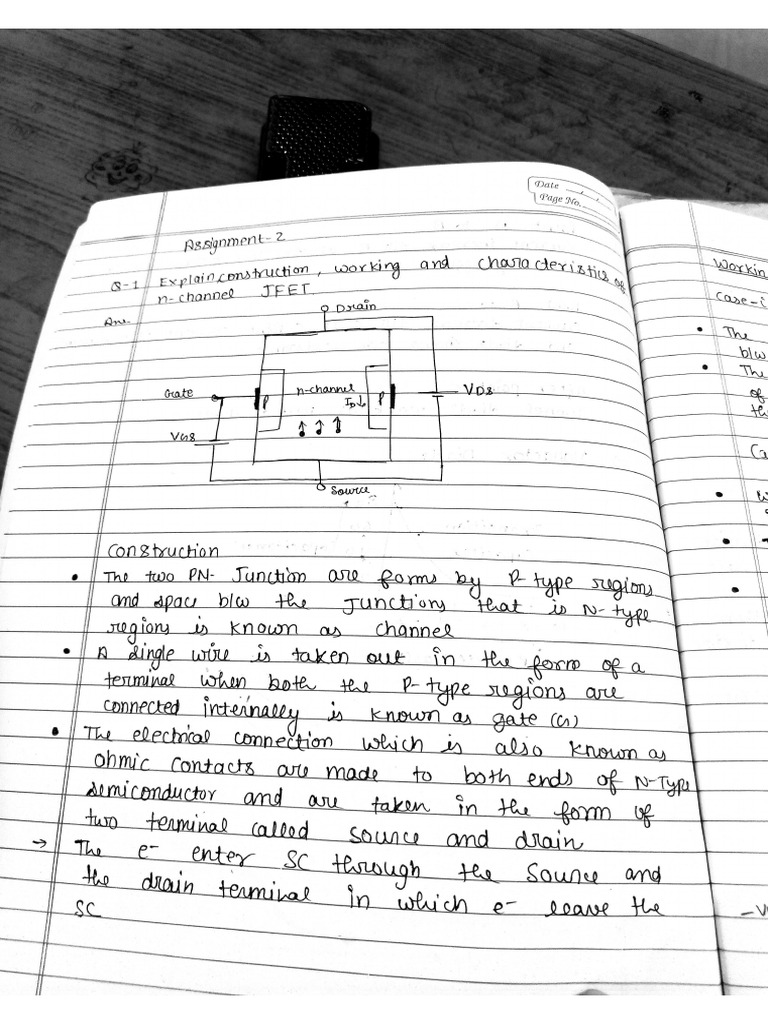 Date
Page No.
Assignment-2
Q-1 Explain construction, working and characteristics of
n-channel JFET.
Ans.
Drain
Gate
P
n-channel
ID↓
P
VDS
VGS
Source
Construction
• The two PN- Junction are forms by P-type regions
and space b/w the Junctions that is N-type
regions is known as channel
• A single wire is taken out in the form of a
terminal when both the P-type regions are
connected internally is known as gate (G)
• The electrical connection which is also known as
ohmic contacts are made to both ends of N-Type
semiconductor and are taken in the form of
two terminal called source and drain
→ The e- enter SC through the Source and
the drain terminal in which e- leave the
SC
Workin
Case-i
• The
b/w
• The
of